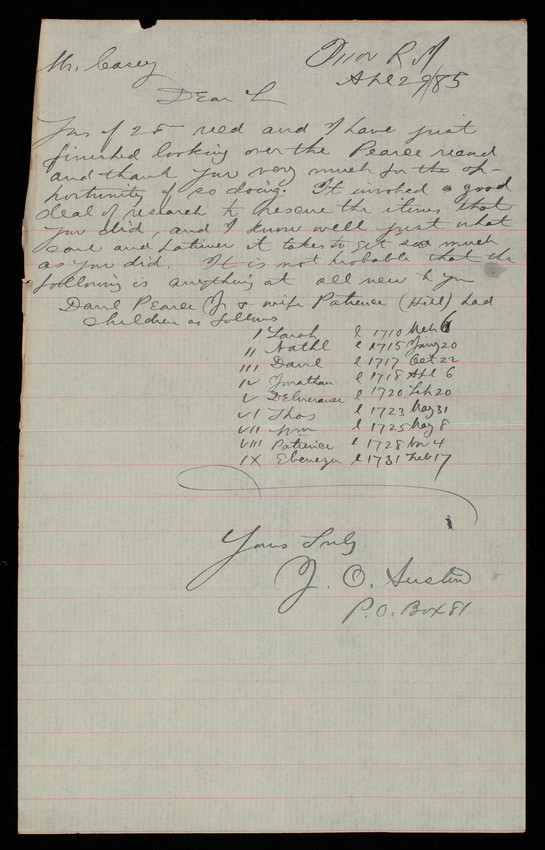 Mr. Casey
Prov R I
Apl 29/85
Dear S
Yrs of 28 recd and I have just
finished looking over the Pearce record
and thank you very much for the op-
portunity of so doing. It involved a good
deal of research to rescue the items that
you did, and I know well just what
care and patience it takes to get so much
as you did. It is not probable that the
following is anything at all new to you
Danl Pearce Jr & wife Patience (Hill) had
children as follows
I Sarah b 1710 Mch 6
II Nathl b 1715 Jany 20
III Danl b 1717 Oct 22
IV Jonathan b 1718 Apl 6
V Deliverance b 1720 Feb 20
VI Thos b 1723 May 31
VII Wm b 1725 May 8
VIII Patience b 1728 Nov 4
IX Ebenezer b 1731 Feb 17
Yours Truly
J. O. Austin
P.O. Box 81